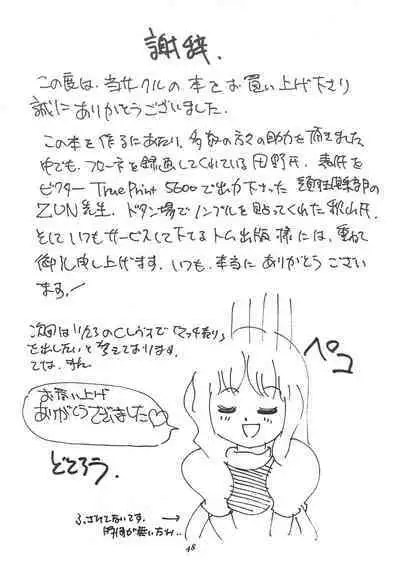 謝辞.
この度は、当サークルの本をお買い上げ下さり
誠にありがとうございました.
この本を作るにあたり、多数の方々の助力を頂きました
中でも、フローネを録画してくれている田野氏、表紙を
ビクター True Print 5600で出力下さった
ZUN先生、ドタン場でノンブルを貼ってくれた郡山氏、
そしていつもサービスして下さるトム出版様には、重ねて
御礼申し上げます。いつも、本当にありがとうござい
ます!
次回は11/23のCレヴォで「マッチ売り」
を出したいと考えております.
では.
ペコ
お買い上げ
ありがとうございました♡
どざろう.
ふざけてないです。
時間が無い
48